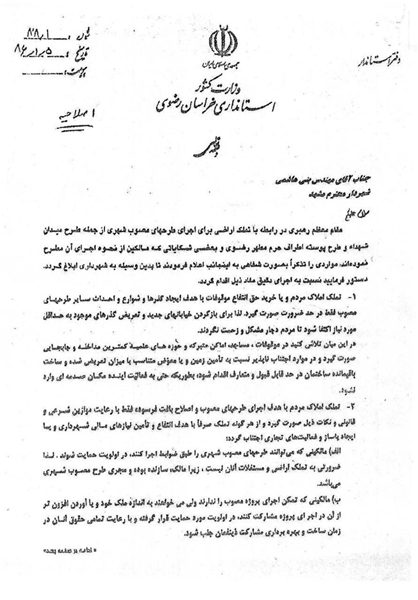 جمهوری اسلامی ایران
وزارت کشور
استانداری خراسان رضوی
دفتر استاندار
اصلاحیه
جناب آقای مهندس بنی هاشمی
شهردار محترم مشهد
سلام علیکم
مقام معظم رهبری در رابطه با تملک اراضی برای اجرای طرحهای مصوب شهری از جمله طرح میدان
شهداء و طرح پیوسته اطراف حرم مطهر رضوی و بعضی شکایاتی که مالکین از نحوه اجرای آن مطرح
نموده‌اند، مواردی را تذکراً بصورت شفاهی به اینجانب اعلام فرمودند تا بدین وسیله به شهرداری ابلاغ گردد.
دستور فرمایید نسبت به اجرای دقیق مفاد ذیل اقدام گردد.
۱- تملک املاک مردم و یا خرید حق انتفاع موقوفات با هدف ایجاد گذرها و شوارع و احداث سایر طرحهای
مصوب فقط در حد ضرورت صورت گیرد. لذا برای بازکردن خیابانهای جدید و تعریض گذرهای موجود به حداقل
مورد نیاز اکتفا شود تا مردم دچار مشکل و زحمت نگردند.
در این میان تلاش کنید در موقوفات، مساجد، اماکن متبرکه و حوزه های علمیه کمترین مداخله و جابجایی
صورت گیرد و در موارد اجتناب ناپذیر نسبت به تأمین زمین و یا معوض متناسب با میزان تعریض شده و ساخت
باقیمانده ساختمان در حد قابل قبول و متعارف اقدام شود، بطوریکه حتی به فعالیت آینده مکان صدمه ای وارد
نشود.
۲- تملک املاک مردم با هدف اجرای طرحهای مصوب و اصلاح بافت فرسوده فقط با رعایت موازین شرعی و
قانونی و نکات ذیل صورت گیرد و از هر گونه تملک صرفاً با هدف انتفاع و تأمین نیازهای مالی شهرداری و یا
ایجاد پاساژ و فعالیت‌های تجاری اجتناب گردد:
الف) مالکینی که می‌توانند طرحهای مصوب شهری را طبق ضوابط اجرا کنند، در اولویت حمایت شوند. لذا
ضرورتی به تملک اراضی و مستغلات آنان نیست، زیرا مالک، سازنده بوده و مجری طرح مصوب شهری
می‌باشد.
ب) مالکینی که تمکن اجرای پروژه مصوب را ندارند ولی می خواهند به اندازه ملک خود و یا آوردن افزون تر
از آن در اجرای پروژه مشارکت کنند، در اولویت مورد حمایت قرار گرفته و با رعایت تمامی حقوق آنان در
زمان ساخت و بهره برداری مشارکت ذینفعان جلب شود.
« ادامه در صفحه بعد»